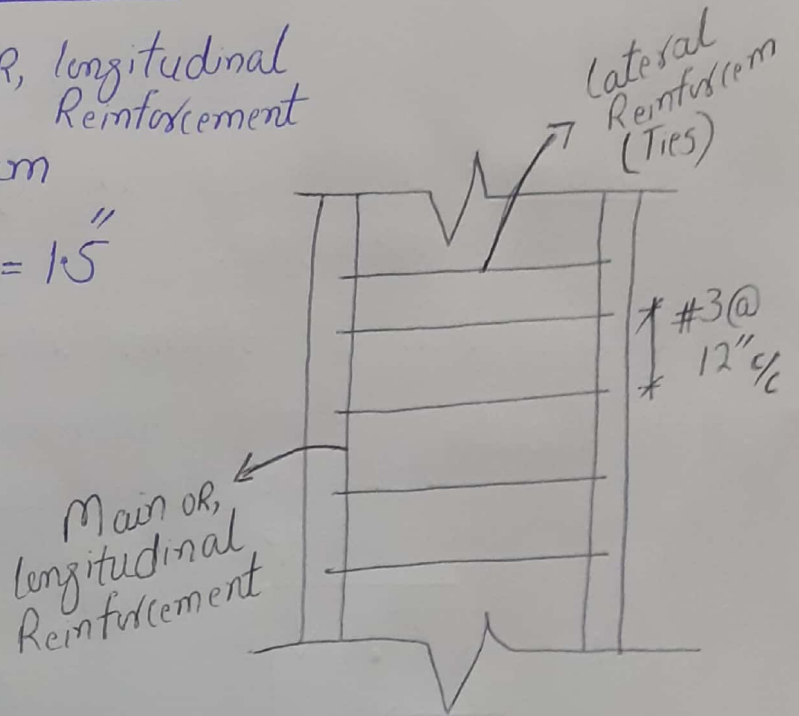 R, longitudinal
Reinforcement
m
= 1.5"
Lateral
Reinforcem
(Ties)
#3@
12" c/c
Main OR,
longitudinal
Reinforcement